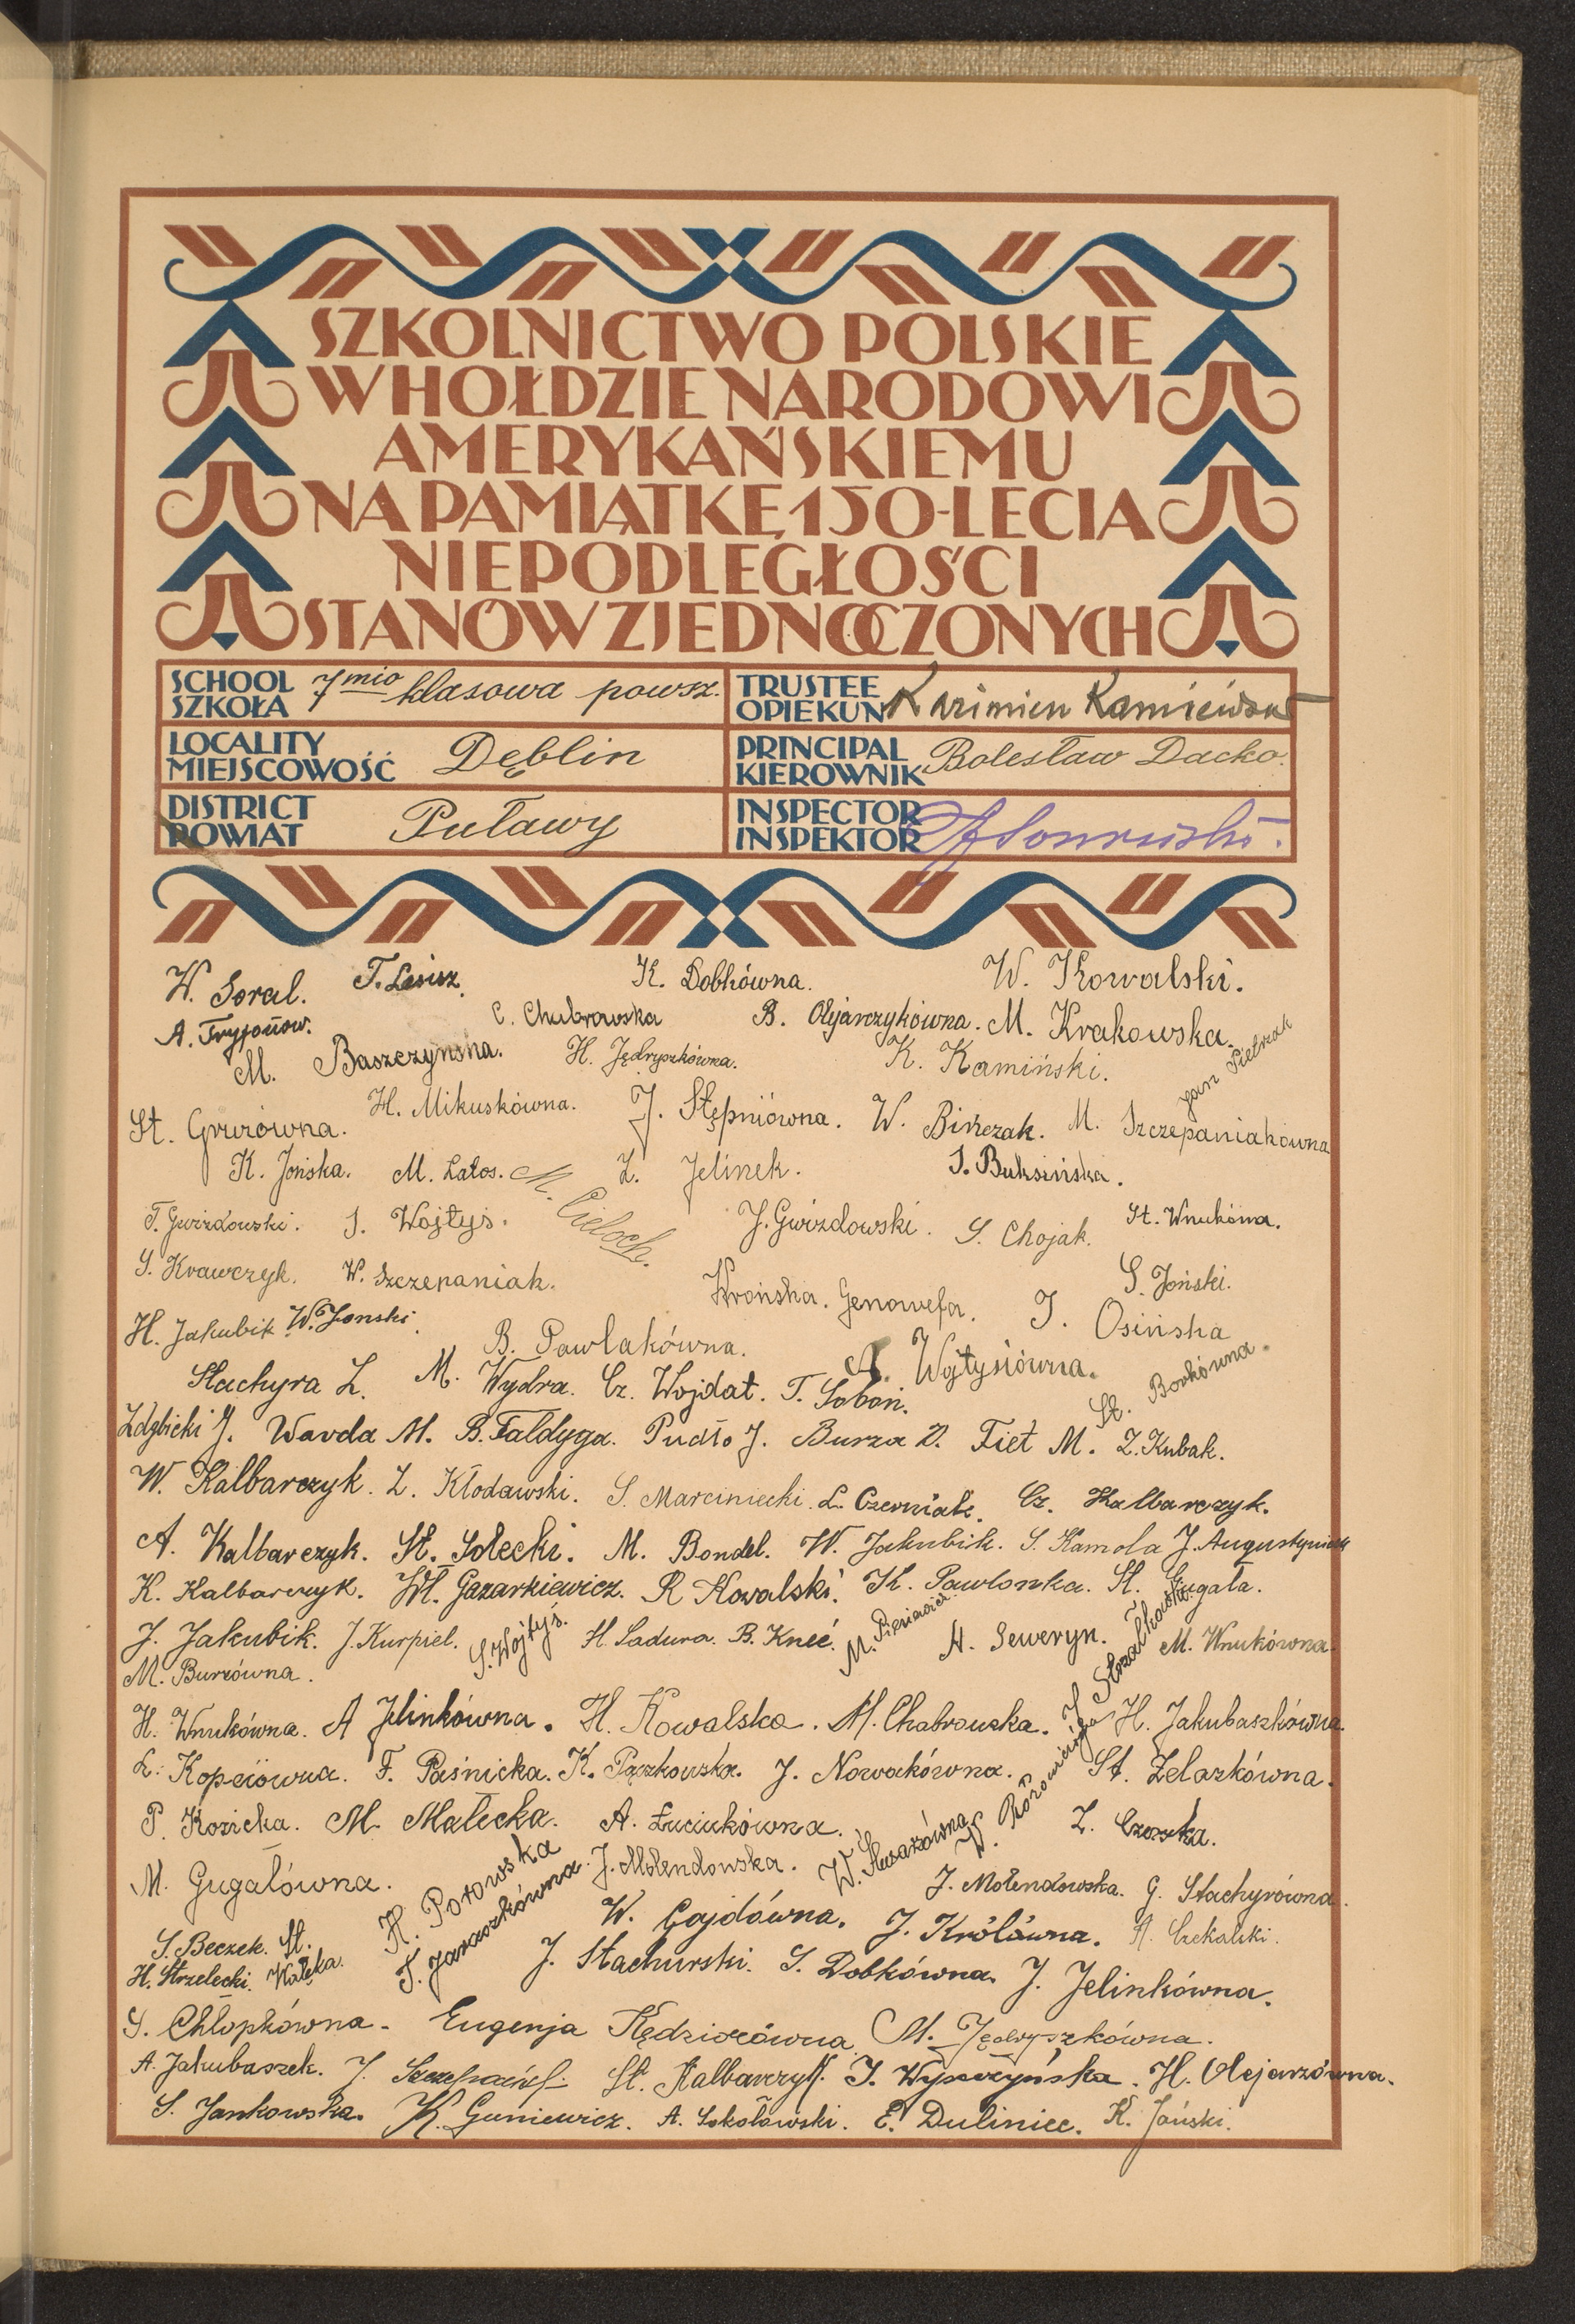 SZKOLNICTWO POLSKIE
W HOŁDZIE NARODOWI
AMERYKAŃSKIEMU
NA PAMIĄTKĘ 150-LECIA
NIEPODLEGŁOŚCI
STANÓW ZJEDNOCZONYCH
SCHOOL
SZKOŁA 7mio klasowa powsz.
TRUSTEE
OPIEKUN
LOCALITY
MIEJSCOWOŚĆ Dęblin
PRINCIPAL
KIEROWNIK Bolesław Dacko.
DISTRICT
POWIAT Puławy
INSPECTOR
INSPEKTOR
W. Soral. T. Lesisz. K. Dobkówna. W. Kowalski.
A. C. Chubrowska B. Olejarczykówna. M. Krakowska.
M. Baszczynska. H. Jędryszkówna. K. Kamiński. Jan Pietrzak
St. H. Mikuskówna. J. Stępniówna. W. Birczak. M. Szczepaniakówna
K. Jońska. M. Latos. M. Cieloch. Z. Jelinek. S. Buksińska.
T. Gwizdowski. S. Wojtyś. J. Gwizdowski. S. Chojak. St. Wnukówna.
S. Krawczyk. W. Szczepaniak. Wrońska. Genowefa. S. Joński.
H. Jakubik W. Jonski. B. Pawlakówna. J. Osińska
Stachyra Z. M. Wydra. Cz. Wojdat. T. Soboń. A. Wojtysiówna. St. Borkówna.
Zdybicki J. Warda M. B. Fałdyga. Pudło J. Burza D. Fiet M. Z. Kubak.
W. Kalbarczyk. Z. Kłodawski. S. Marciniecki. L. Czerniak. Cz. Kalbarczyk.
A. Kalbarczyk. St. Solecki. M. Bondel. W. Jakubik. S. Kamola J. Augustyniak
K. Kalbarczyk. Wł. Gazarkiewicz. R Kowalski. K. Pawlonka. St. Gugała.
J. Jakubik. J. Kurpiel. S. Wojtyś. H. Sadura. B. Kneć. M. Pieniewicz. A. Seweryn. M. Wnukówna.
M. Burzówna.
H. Wnukówna. A Jelinkówna. H. Kowalska. M. Chabrowska. J. Strzałkowska. H. Jakubaszkówna.
Z. Kopciówna. F. Paśnicka. K. Pączkowska. J. Nowakówna. St. Żelazkówna.
P. Kozicka. M. Małecka. A. Łuciukówna. W. Ślusarówna W. Z.
M. Gugałówna. H. Potowska J. Molendowska. J. Mołendowska. G. Stachyrówna.
S. Beczek. St. Kałeka. T. Jaszczorkówna. W. Gajdówna. J. Królówna. A. Czekalski.
H. Strzelecki. J. Stachurski. S. Dobkówna. J. Jelinkówna.
S. Chłopkówna. Eugenja Kędziorówna. M. Jędryszkówna.
A. Jakubaszek. J. St. Kalbarczyk. J. Wyszczyńska. H. Olejarzówna.
S. Jankowska. K. Guniewicz. A. Sokołowski. E. Duliniec. K. Jański.